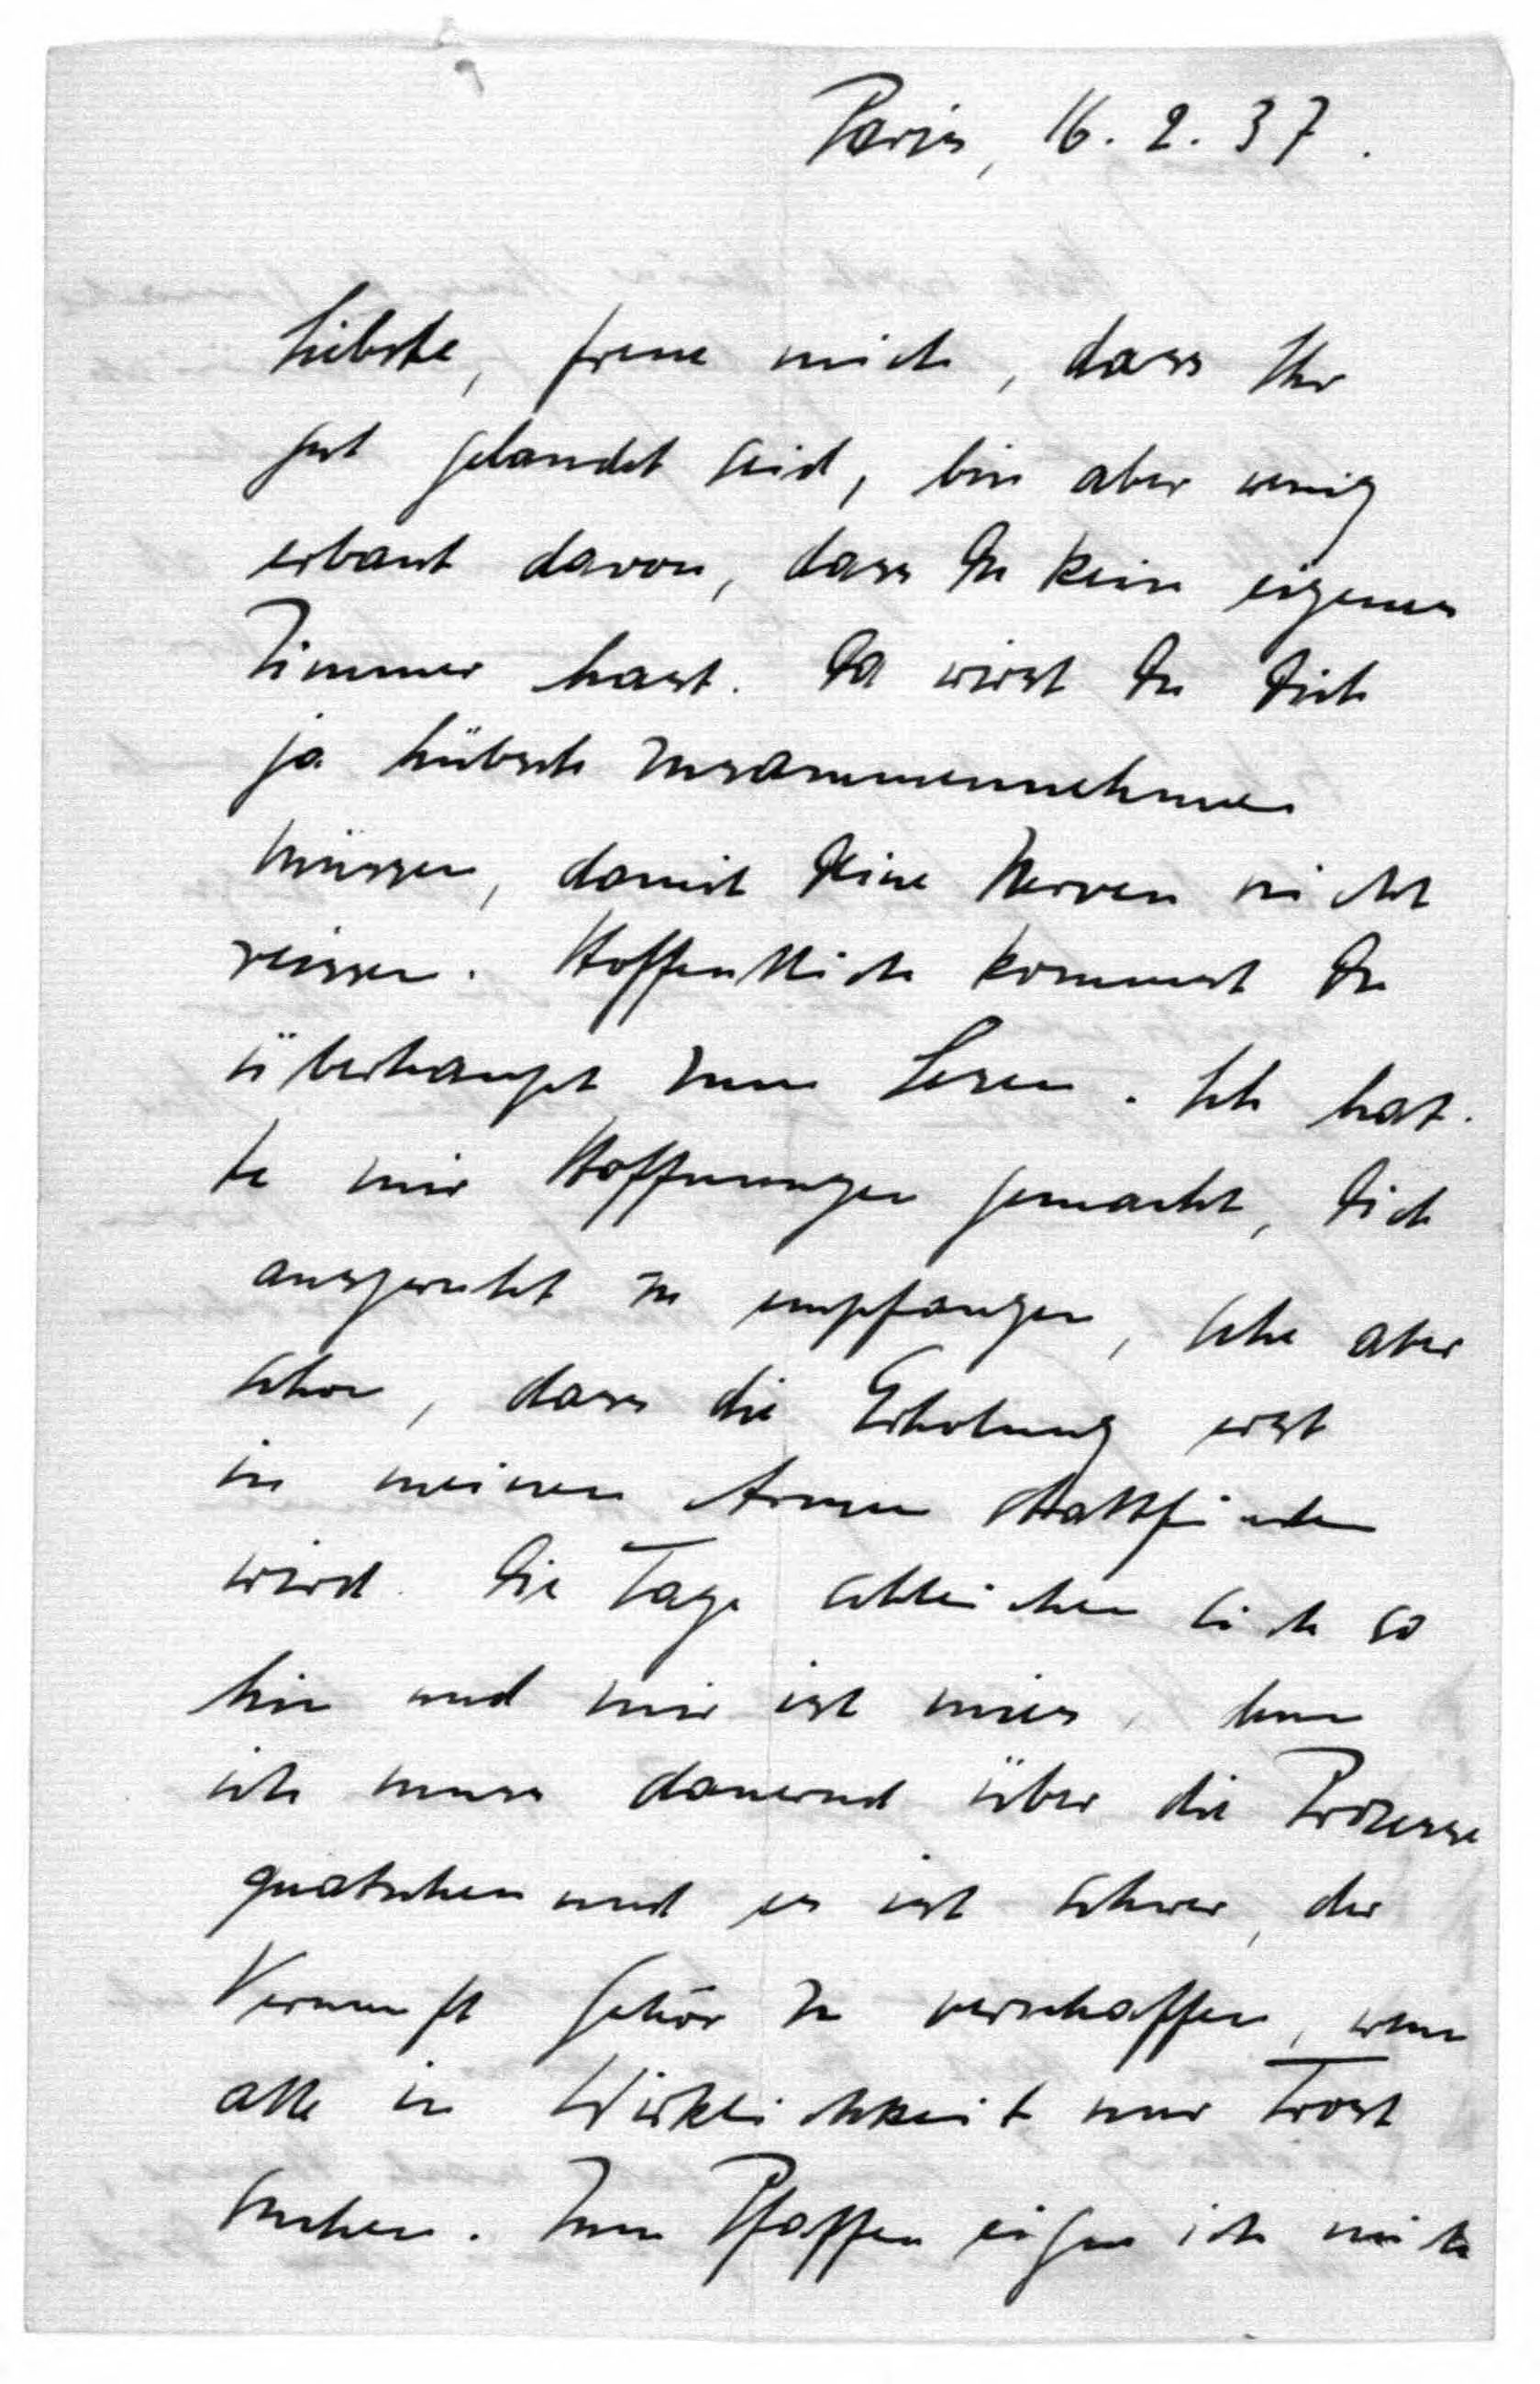 Paris, 16. 2. 37.
Liebste, freue mich, dass Ihr
gut gelandet seid, bin aber wenig
erbaut davon, dass Du kein eigenes
Zimmer hast. Da wirst Du Dich
ja hübsch zusammennehmen
müssen, damit Deine Nerven nicht
reissen. Hoffentlich kommst Du
überhaupt zum Lesen. Ich hat-
te mir Hoffnungen gemacht, Dich
ausgeruht zu empfangen, sehe aber
schon, dass die Erholung erst
in meinen Armen stattfinden
wird. Die Tage schleichen sich so
hin und mir ist mies, denn
ich muss dauernd über die Prozesse
quatschen und es ist schwer, der
Vernunft Gehör zu verschaffen, wenn
alle in Wirklichkeit nur Trost
suchen. Zum Pfaffen eigne ich mich